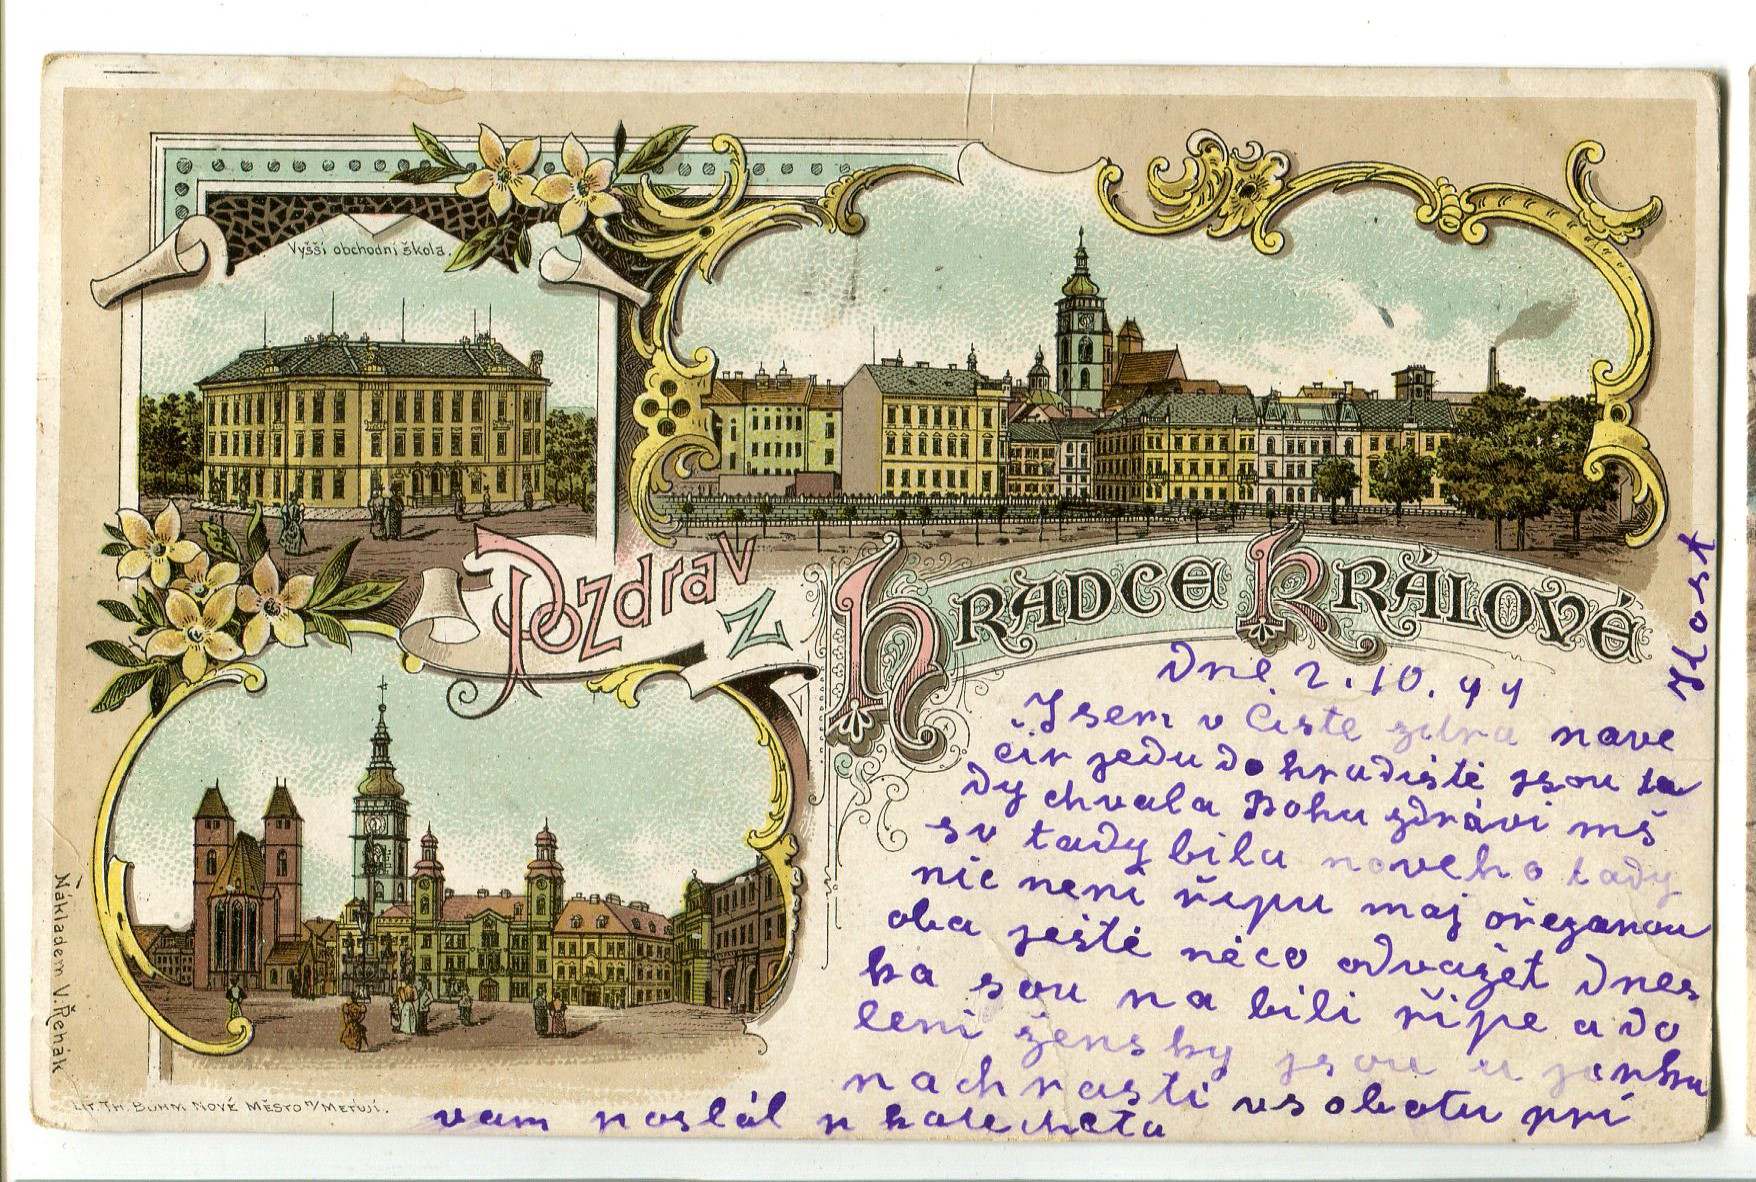 Vyšší obchodní škola.
Pozdrav
z
Hradce Králové
Dne 2. 10. 99
Jsem v Čisté zdra nave
čír jedu do hradiště jsou ta
dy chvala Bohu zdrávi mš
sv tady bila noveho tady
nic není řepu maj ořezanou
oba ještě něco odvažet Dnes
ka sou na bili řípe a do
lení žensky jsou u
na chrasti v sobotu pri
vam poslál
Nákladem V. Řehák.
Lit. Th. Böhm, Nové Město n/Metují.